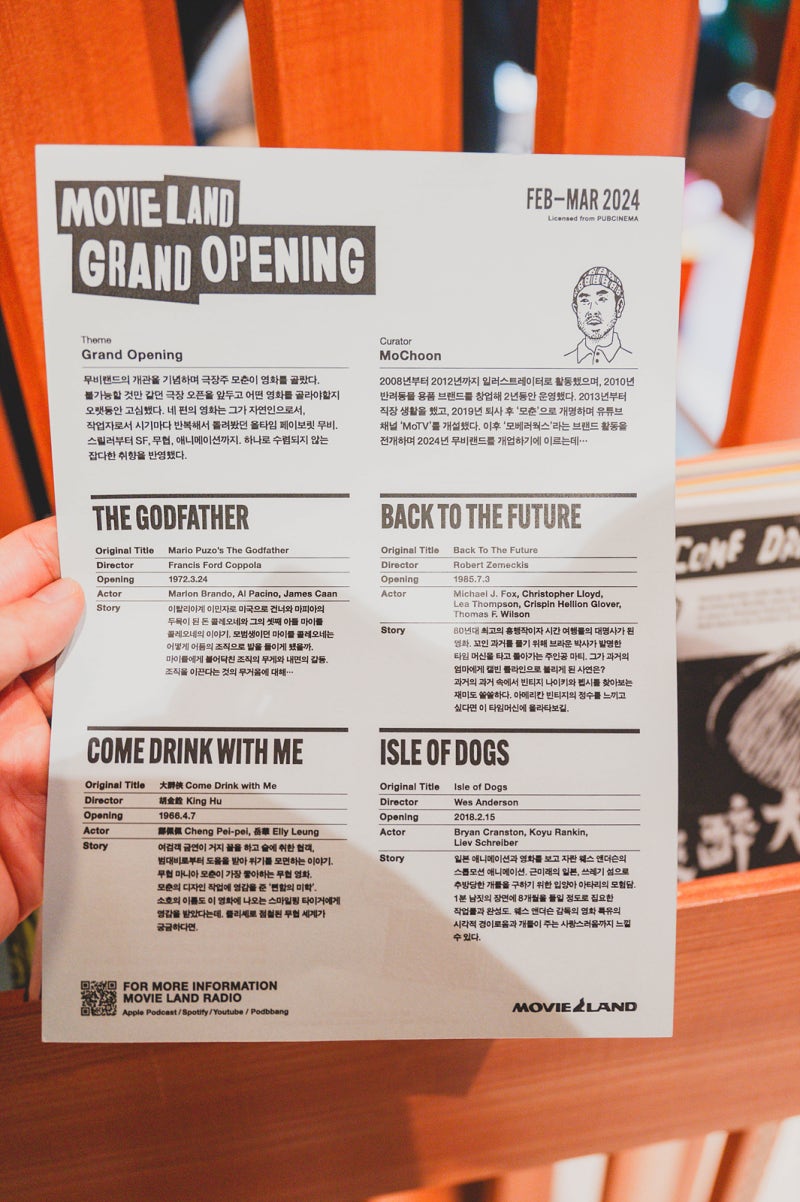 MOVIE LAND
GRAND OPENING
FEB–MAR 2024
Licensed from PUBCINEMA
Theme
Grand Opening
무비랜드의 개관을 기념하며 극장주 모춘이 영화를 골랐다.
불가능할 것만 같던 극장 오픈을 앞두고 어떤 영화를 골라야할지
오랫동안 고심했다. 네 편의 영화는 그가 자연인으로서,
작업자로서 시기마다 반복해서 돌려봤던 올타임 페이보릿 무비.
스릴러부터 SF, 무협, 애니메이션까지. 하나로 수렴되지 않는
잡다한 취향을 반영했다.
Curator
MoChoon
2008년부터 2012년까지 일러스트레이터로 활동했으며, 2010년
반려동물 용품 브랜드를 창업해 2년동안 운영했다. 2013년부터
직장 생활을 했고, 2019년 퇴사 후 '모춘'으로 개명하며 유튜브
채널 'MoTV'를 개설했다. 이후 '모베러웍스'라는 브랜드 활동을
전개하며 2024년 무비랜드를 개업하기에 이르는데…
THE GODFATHER
Original Title Mario Puzo's The Godfather
Director Francis Ford Coppola
Opening 1972.3.24
Actor Marlon Brando, Al Pacino, James Caan
Story 이탈리아계 이민자로 미국으로 건너와 마피아의
두목이 된 돈 콜레오네와 그의 셋째 아들 마이클
콜레오네의 이야기. 모범생이던 마이클 콜레오네는
어떻게 어둠의 조직으로 발을 들이게 됐을까.
마이클에게 불어닥친 조직의 무게와 내면의 갈등.
조직을 이끈다는 것의 무거움에 대해…
BACK TO THE FUTURE
Original Title Back To The Future
Director Robert Zemeckis
Opening 1985.7.3
Actor Michael J. Fox, Christopher Lloyd,
Lea Thompson, Crispin Hellion Glover,
Thomas F. Wilson
Story 80년대 최고의 흥행작이자 시간 여행물의 대명사가 된
영화. 꼬인 과거를 풀기 위해 브라운 박사가 발명한
타임 머신을 타고 돌아가는 주인공 마티. 그가 과거의
엄마에게 캘빈 클라인으로 불리게 된 사연은?
과거의 과거 속에서 빈티지 나이키와 펩시를 찾아보는
재미도 쏠쏠하다. 아메리칸 빈티지의 정수를 느끼고
싶다면 이 타임머신에 올라타보길.
COME DRINK WITH ME
Original Title 大醉俠 Come Drink with Me
Director 胡金銓 King Hu
Opening 1966.4.7
Actor 鄭佩佩 Cheng Pei-pei, 岳華 Elly Leung
Story 여검객 금연이 거지 꼴을 하고 술에 취한 협객,
범대비로부터 도움을 받아 위기를 모면하는 이야기.
무협 마니아 모춘이 가장 좋아하는 무협 영화.
모춘의 디자인 작업에 영감을 준 '뻔함의 미학'.
소호의 이름도 이 영화에 나오는 스마일링 타이거에게
영감을 받았다는데. 클리셰로 점철된 무협 세계가
궁금하다면.
ISLE OF DOGS
Original Title Isle of Dogs
Director Wes Anderson
Opening 2018.2.15
Actor Bryan Cranston, Koyu Rankin,
Liev Schreiber
Story 일본 애니메이션과 영화를 보고 자란 웨스 앤더슨의
스톱모션 애니메이션. 근미래의 일본, 쓰레기 섬으로
추방당한 개들을 구하기 위한 입양아 아타리의 모험담.
1분 남짓의 장면에 8개월을 들일 정도로 집요한
작업률과 완성도. 웨스 앤더슨 감독의 영화 특유의
시각적 경이로움과 개들이 주는 사랑스러움까지 느낄
수 있다.
FOR MORE INFORMATION
MOVIE LAND RADIO
Apple Podcast / Spotify / Youtube / Podbbang
MOVIE LAND
COME
醉大